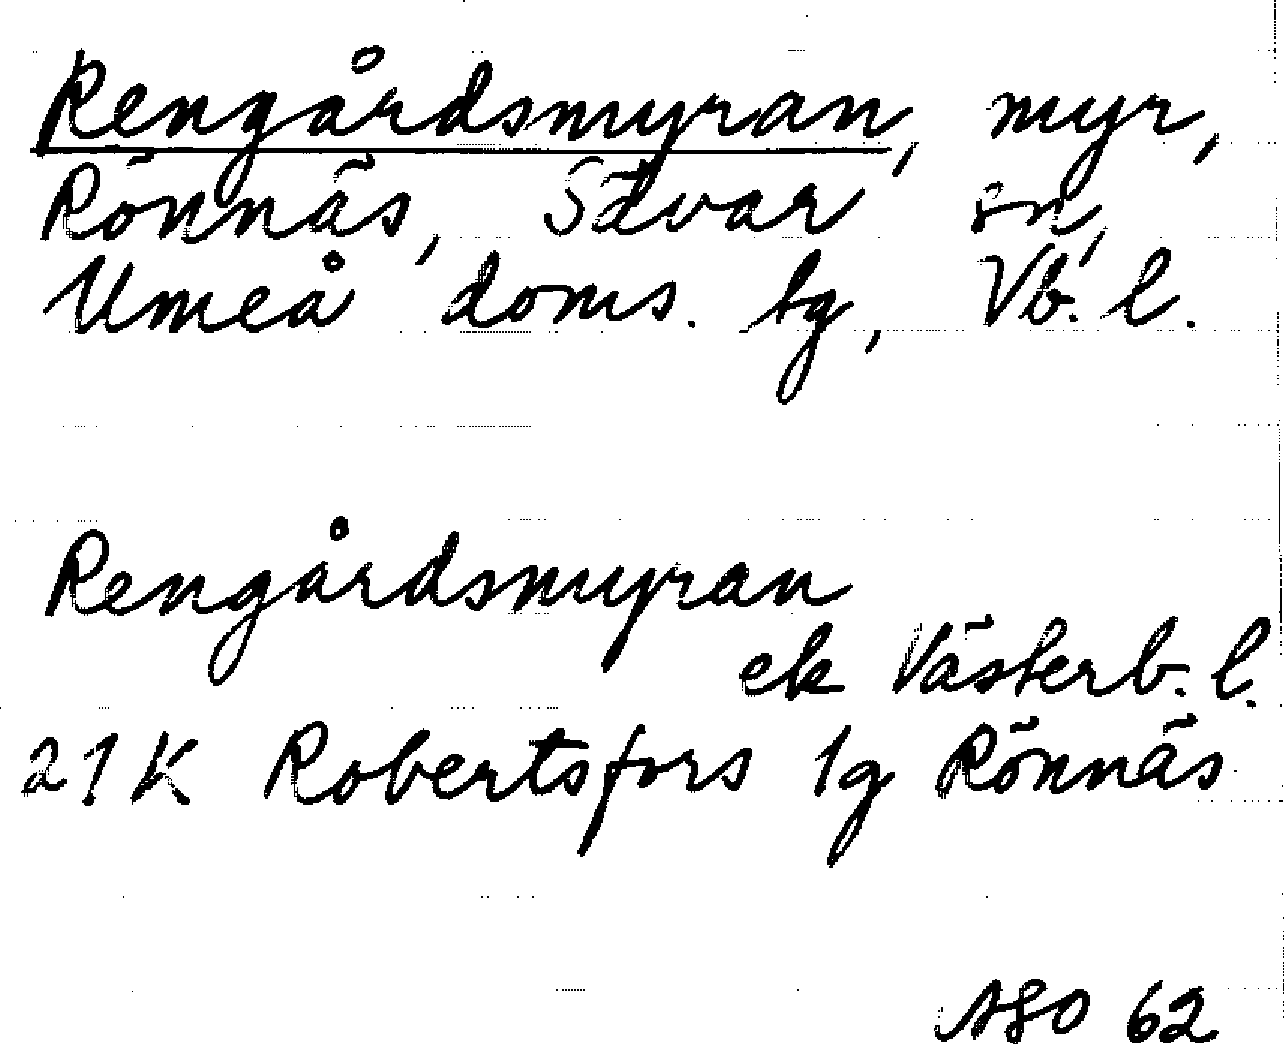 Rengårdsmyran, myr,
Rönnäs, Sävar sn,
Umeå doms. tg, Vb. l.
Rengårdsmyran
ek Västerb. l.
21K Robertsfors 1g Rönnäs
ASO 62